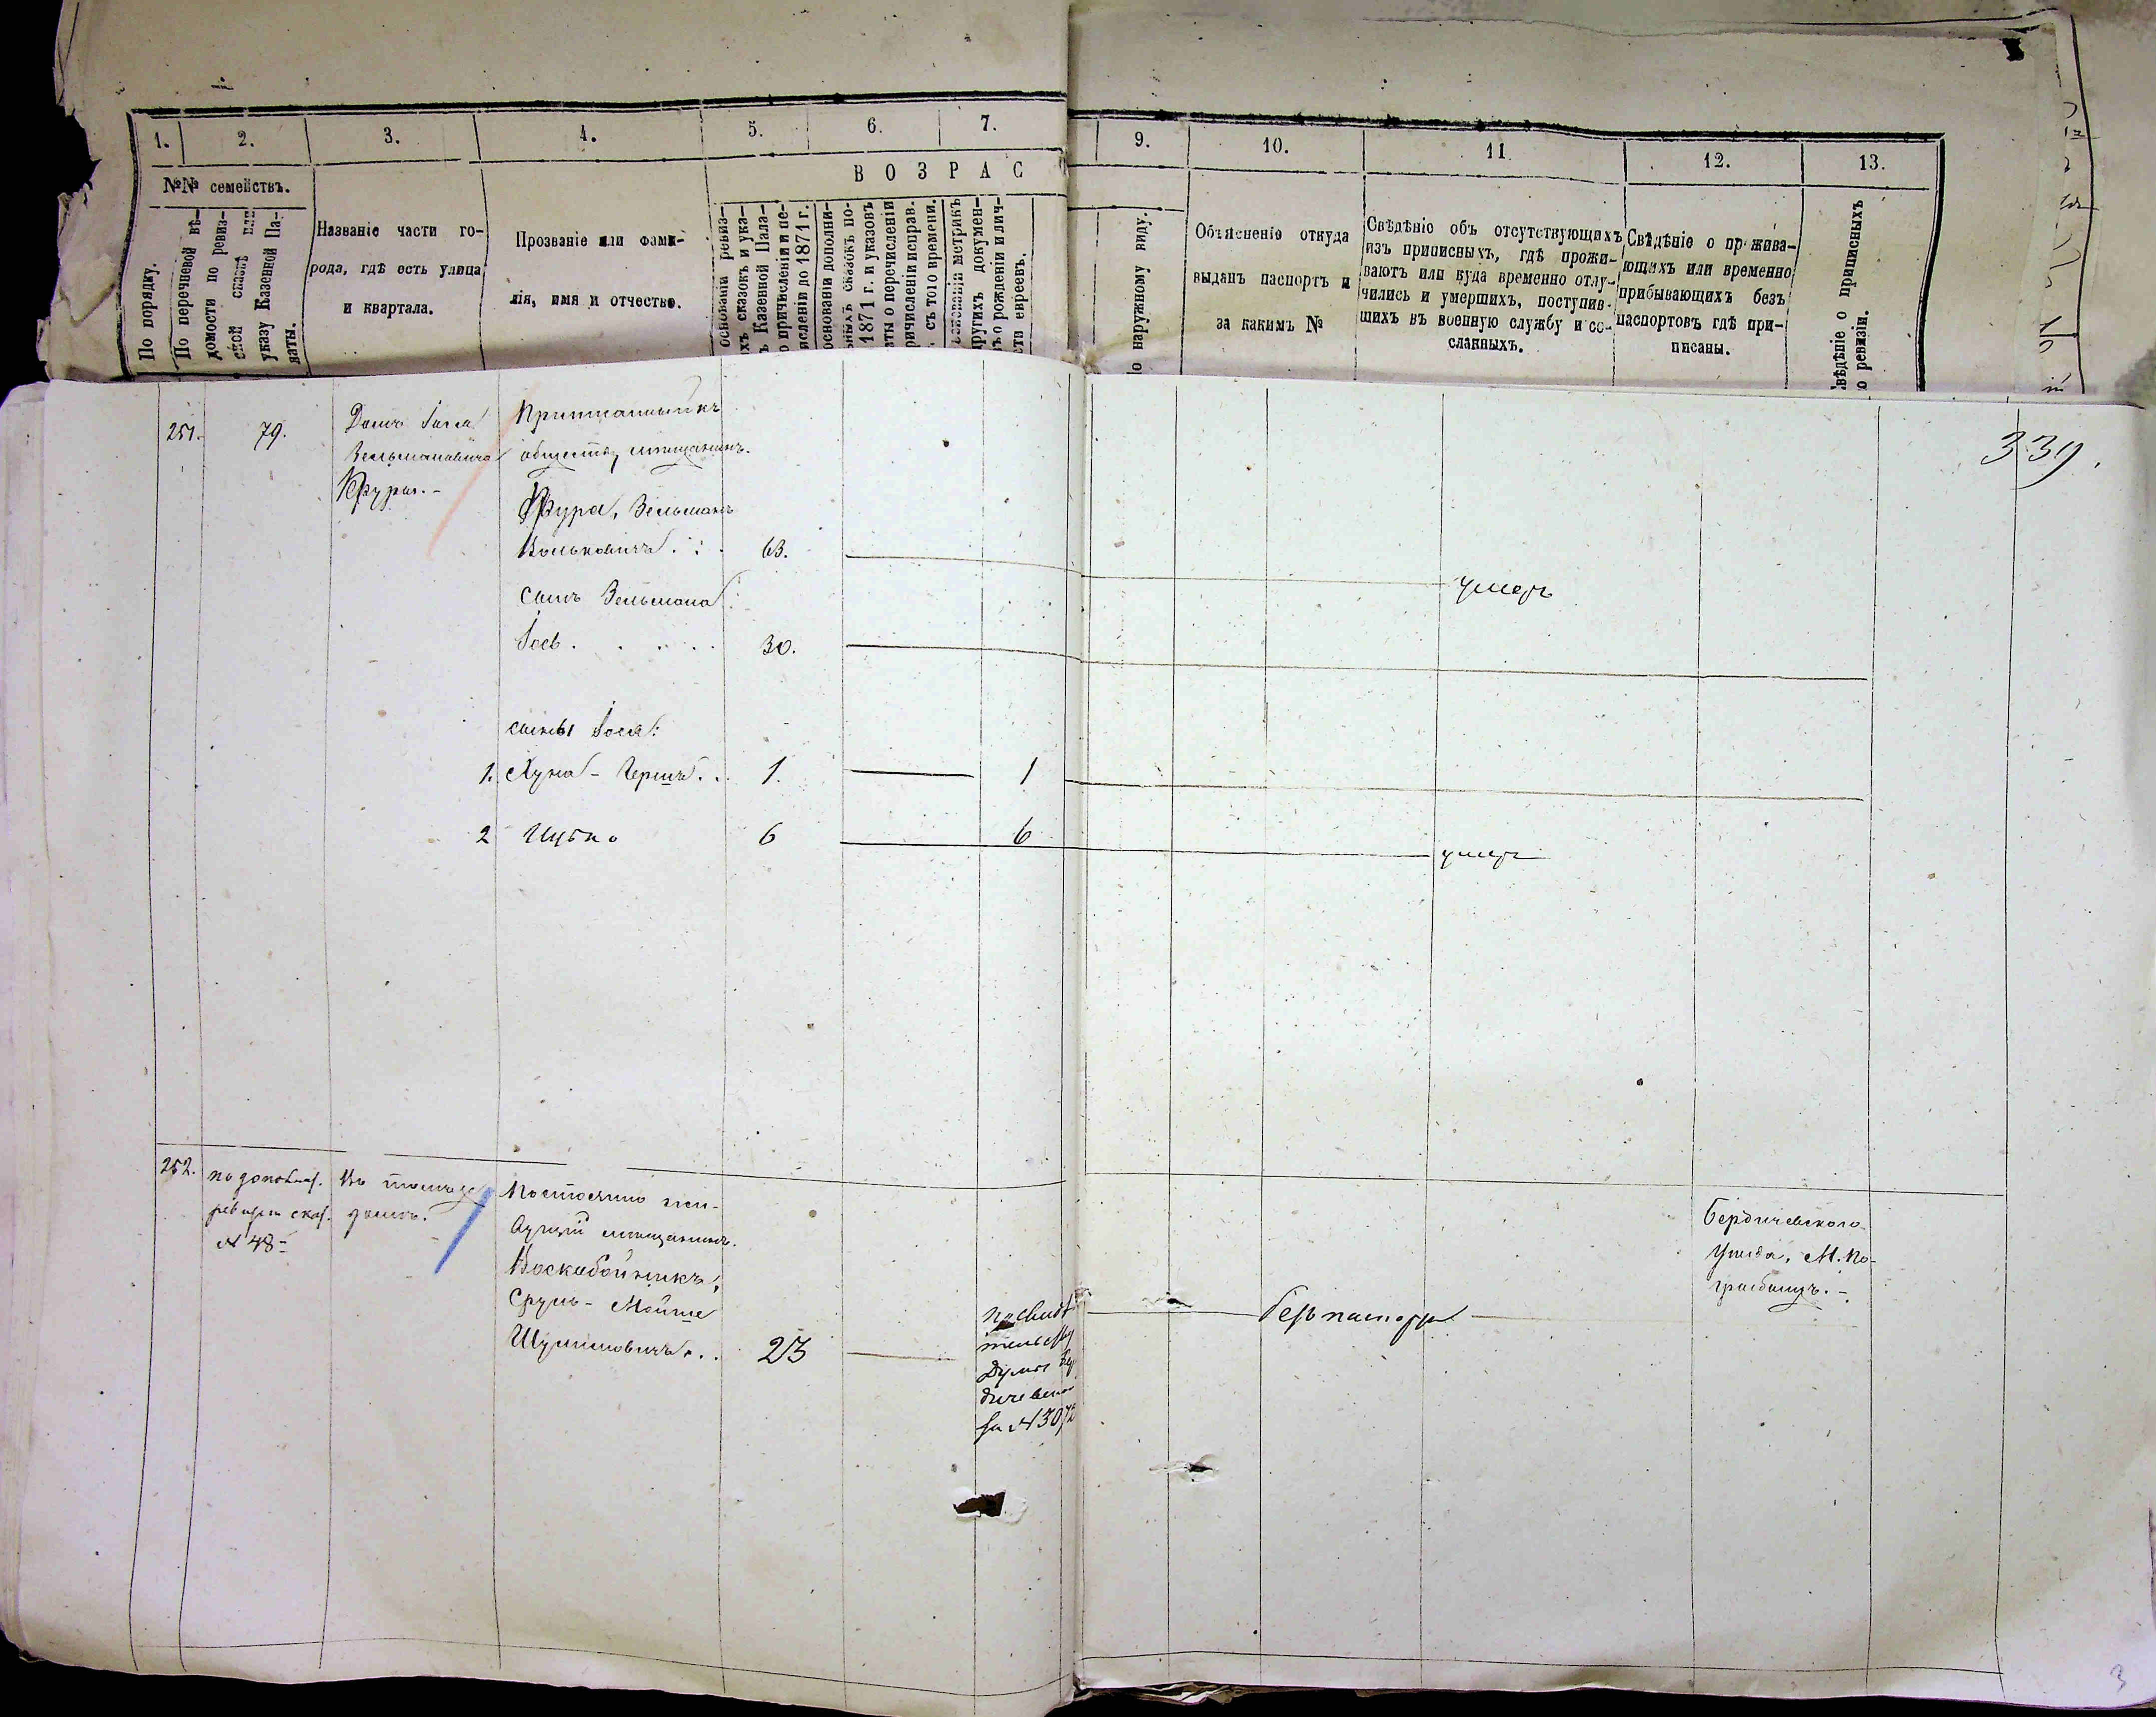 1. 2. 3. 4. 5. 6. 7. 9. 10. 11. 12. 13.
№№ семействъ.
ВОЗРАС
По порядку.
По перечневой вѣ-
домости по ревиз-
ской сказкѣ или
указу Казенной Па-
латы.
Названіе части го-
рода, гдѣ есть улица
и квартала.
Прозваніе или фами-
лія, имя и отчество.
основаніи ревиз-
хъ сказокъ и ука-
ъ Казенной Пала-
о причисленіи и пе-
исленіи до 1871 г.
основаніи дополни-
ныхъ сказокъ по-
1871 г. и указовъ
аты о перечисленіи
ричисленіи исправ.
съ того времени.
основаніи метрикъ
другихъ докумен-
ъ о рожденіи и лич-
сти евреевъ.
о наружному виду.
Объясненіе откуда
выданъ паспортъ и
за какимъ №
Свѣдѣніе объ отсутствующихъ
изъ приписныхъ, гдѣ прожи-
ваютъ или куда временно отлу-
чились и умершихъ, поступив-
шихъ въ военную службу и сс-
сланныхъ.
Свѣдѣніе о прожива-
ющихъ или временно
прибывающихъ безъ
паспортовъ гдѣ при-
писаны.
вѣдѣніе о приписныхъ
о ревизіи.
339.
251. 79.
Домъ Іося
Зельмановича
Фуры.-
Приписанный къ
обществу мѣщанинъ.
Фура, Зельманъ
Вольковичъ . : . 63. умеръ
сынъ Зельмана:
Іось . . . . . 30.
сыны Іося:
1. Хуна-Гершъ . . 1. 1
2 Ицько 6 6 умеръ
252.
по дополнит.
ревизск. сказ.
№ 48-
Въ томъ же
домѣ.
Постоянно жи-
вущій мѣщанинъ.
Воскобойникъ,
Сруль-Мойше
Шулимовичъ . . 23
по свидѣ
тельству
Думы Бер
дичевской
за № 3072
безъ паспорта
Бердичевскаго
Уѣзда, М. По-
гребищъ.-
3